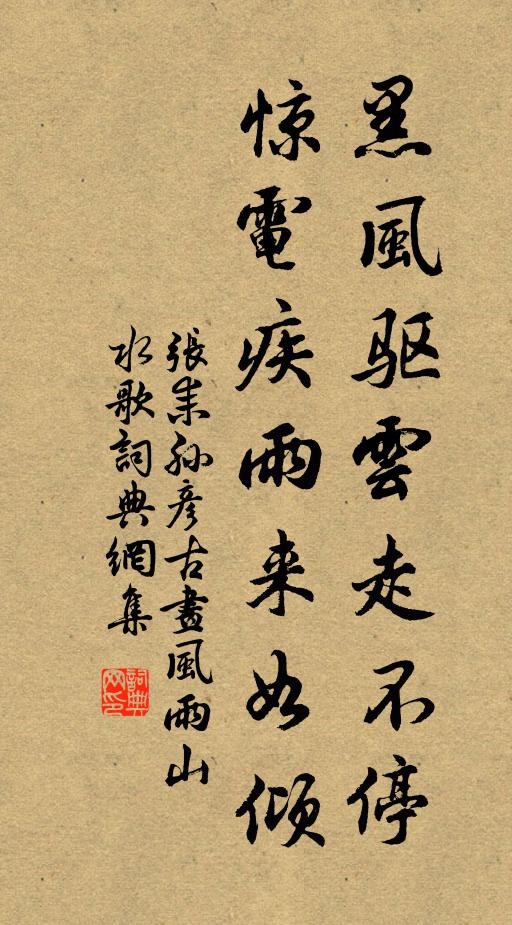 黑風驱雲走不停
惊電疾雨来如傾
張耒孙彦古畫風雨山
水歌詞典網集
詞典网印